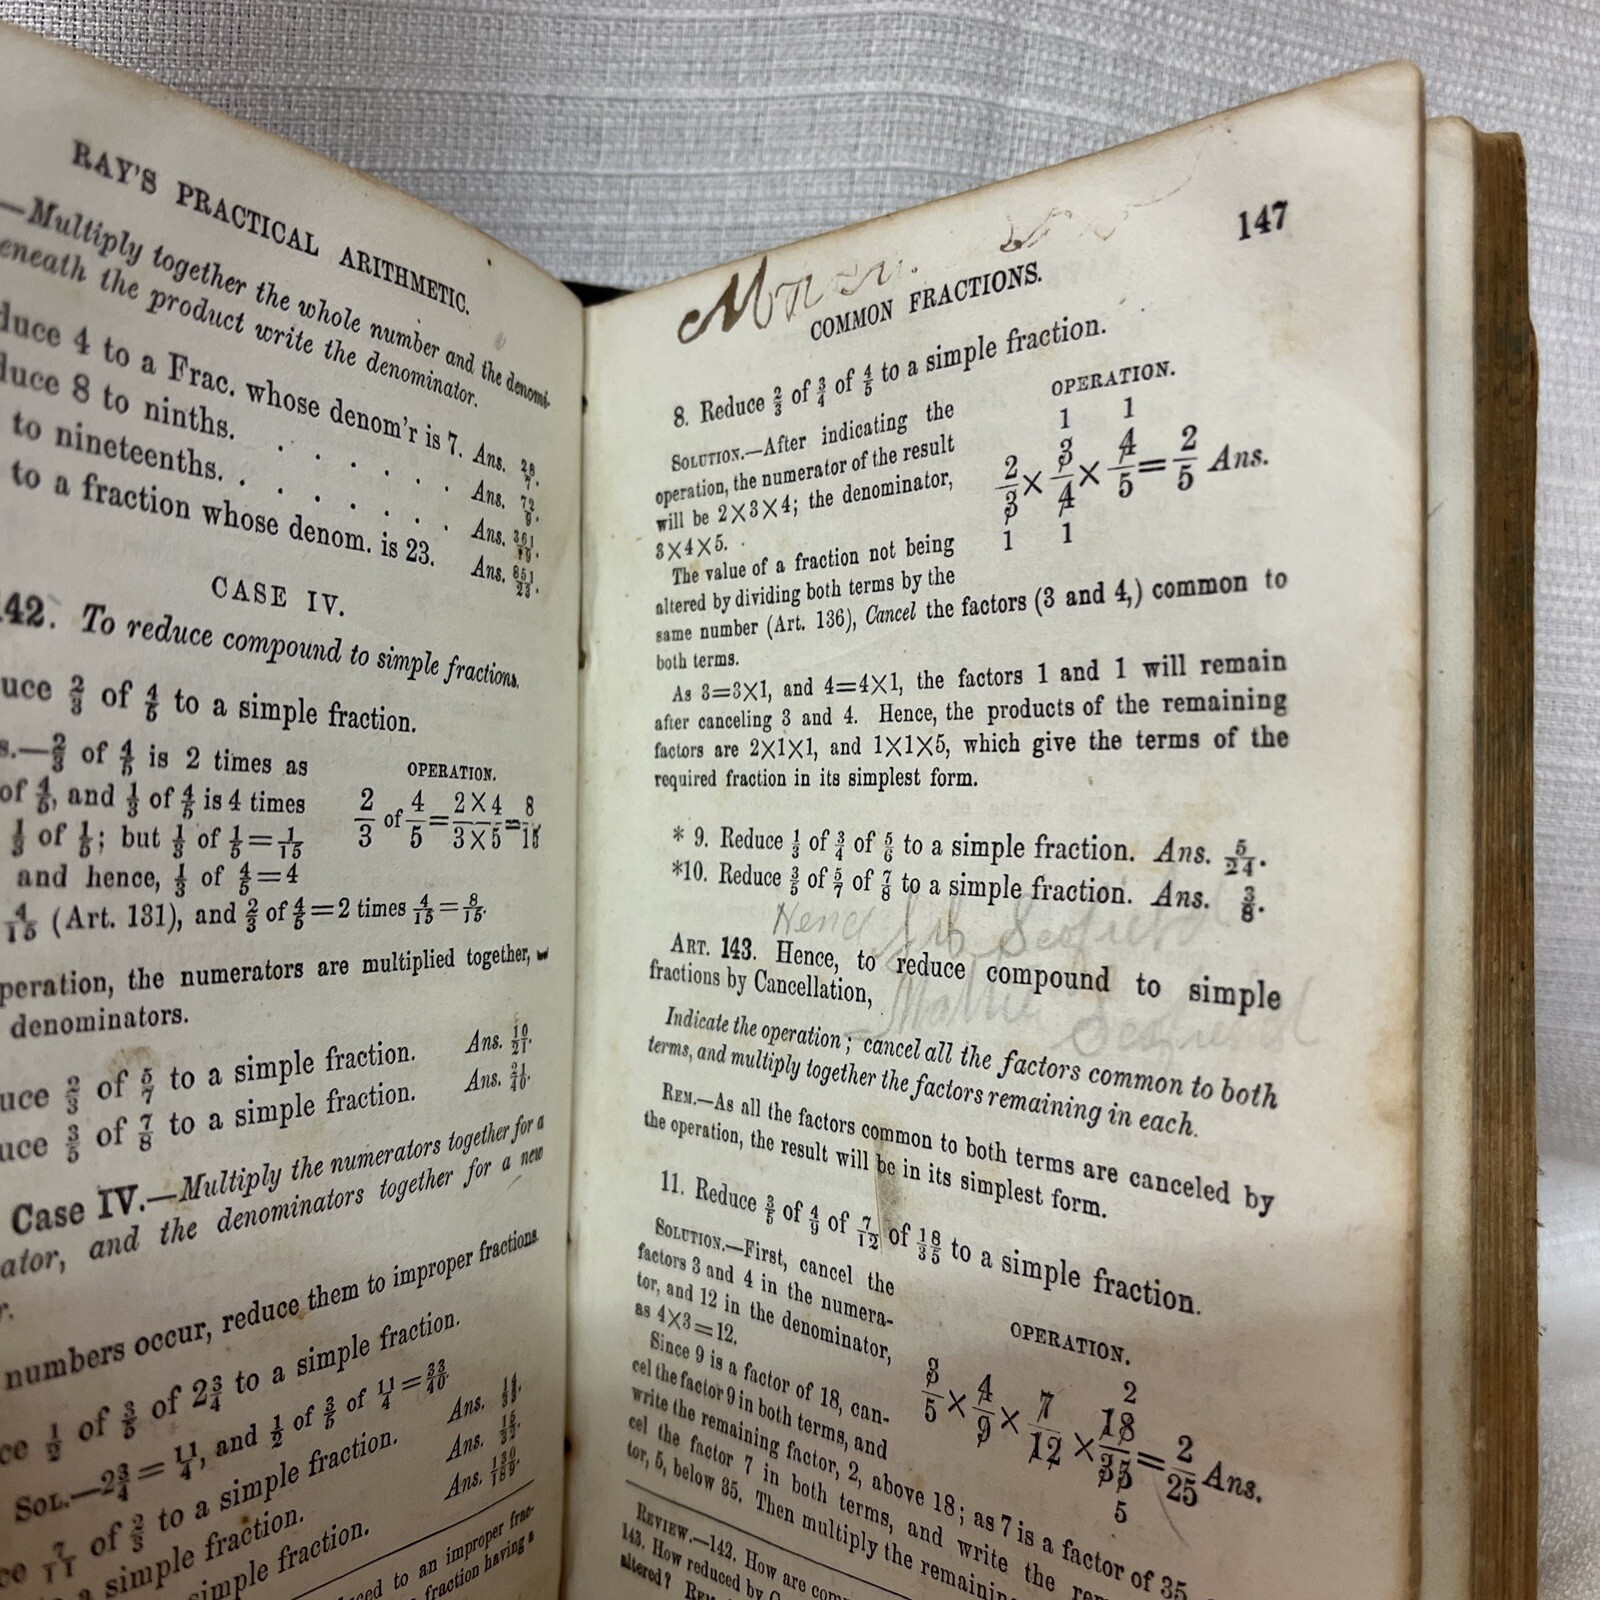 RAY'S PRACTICAL ARITHMETIC.
—Multiply together the whole number and the denomi-
eneath the product write the denominator.
duce 4 to a Frac. whose denom'r is 7. Ans. 28/7.
duce 8 to ninths. . . . . . . Ans. 72/9.
to nineteenths. . . . . . . Ans. 361/19.
to a fraction whose denom. is 23. Ans. 851/23.
CASE IV.
142. To reduce compound to simple fractions.
uce 2/3 of 4/5 to a simple fraction.
s.—2/3 of 4/5 is 2 times as
of 4/5, and 1/3 of 4/5 is 4 times
1/3 of 1/5; but 1/3 of 1/5=1/15
and hence, 1/3 of 4/5=4
4/15 (Art. 131), and 2/3 of 4/5=2 times 4/15=8/15.
OPERATION.
2/3 of 4/5=2×4/3×5=8/15
peration, the numerators are multiplied together,
denominators.
uce 2/3 of 5/7 to a simple fraction. Ans. 10/21.
uce 3/5 of 7/8 to a simple fraction. Ans. 21/40.
Case IV.—Multiply the numerators together for a
ator, and the denominators together for a new
r.
numbers occur, reduce them to improper fractions.
ce 1/2 of 3/5 of 2 3/4 to a simple fraction.
SOL.—2 3/4=11/4, and 1/2 of 3/5 of 11/4=33/40.
ce 7/11 of 2/3 to a simple fraction. Ans. 14/33.
to a simple fraction. Ans. 15/32.
simple fraction. Ans. 130/189.
duced to an improper frac-
fraction having a
147
COMMON FRACTIONS.
8. Reduce 2/3 of 3/4 of 4/5 to a simple fraction.
SOLUTION.—After indicating the
operation, the numerator of the result
will be 2×3×4; the denominator,
3×4×5.
The value of a fraction not being
altered by dividing both terms by the
same number (Art. 136), Cancel the factors (3 and 4,) common to
both terms.
OPERATION.
1 1
2/3×3/4×4/5=2/5 Ans.
1 1
As 3=3×1, and 4=4×1, the factors 1 and 1 will remain
after canceling 3 and 4. Hence, the products of the remaining
factors are 2×1×1, and 1×1×5, which give the terms of the
required fraction in its simplest form.
* 9. Reduce 1/3 of 3/4 of 5/6 to a simple fraction. Ans. 5/24.
*10. Reduce 3/5 of 5/7 of 7/8 to a simple fraction. Ans. 3/8.
Scofield
ART. 143. Hence, to reduce compound to simple
fractions by Cancellation,
Mattie Scofield
Indicate the operation; cancel all the factors common to both
terms, and multiply together the factors remaining in each.
REM.—As all the factors common to both terms are canceled by
the operation, the result will be in its simplest form.
11. Reduce 3/5 of 4/9 of 7/12 of 18/35 to a simple fraction.
SOLUTION.—First, cancel the
factors 3 and 4 in the numera-
tor, and 12 in the denominator,
as 4×3=12.
Since 9 is a factor of 18, can-
cel the factor 9 in both terms, and
write the remaining factor, 2, above 18; as 7 is a factor of 35,
cel the factor 7 in both terms, and write the
tor, 5, below 35. Then multiply the remaining
OPERATION.
2
3/5×4/9×7/12×18/35=2/25 Ans.
5
REVIEW.—142. How are
143. How reduced by
altered?